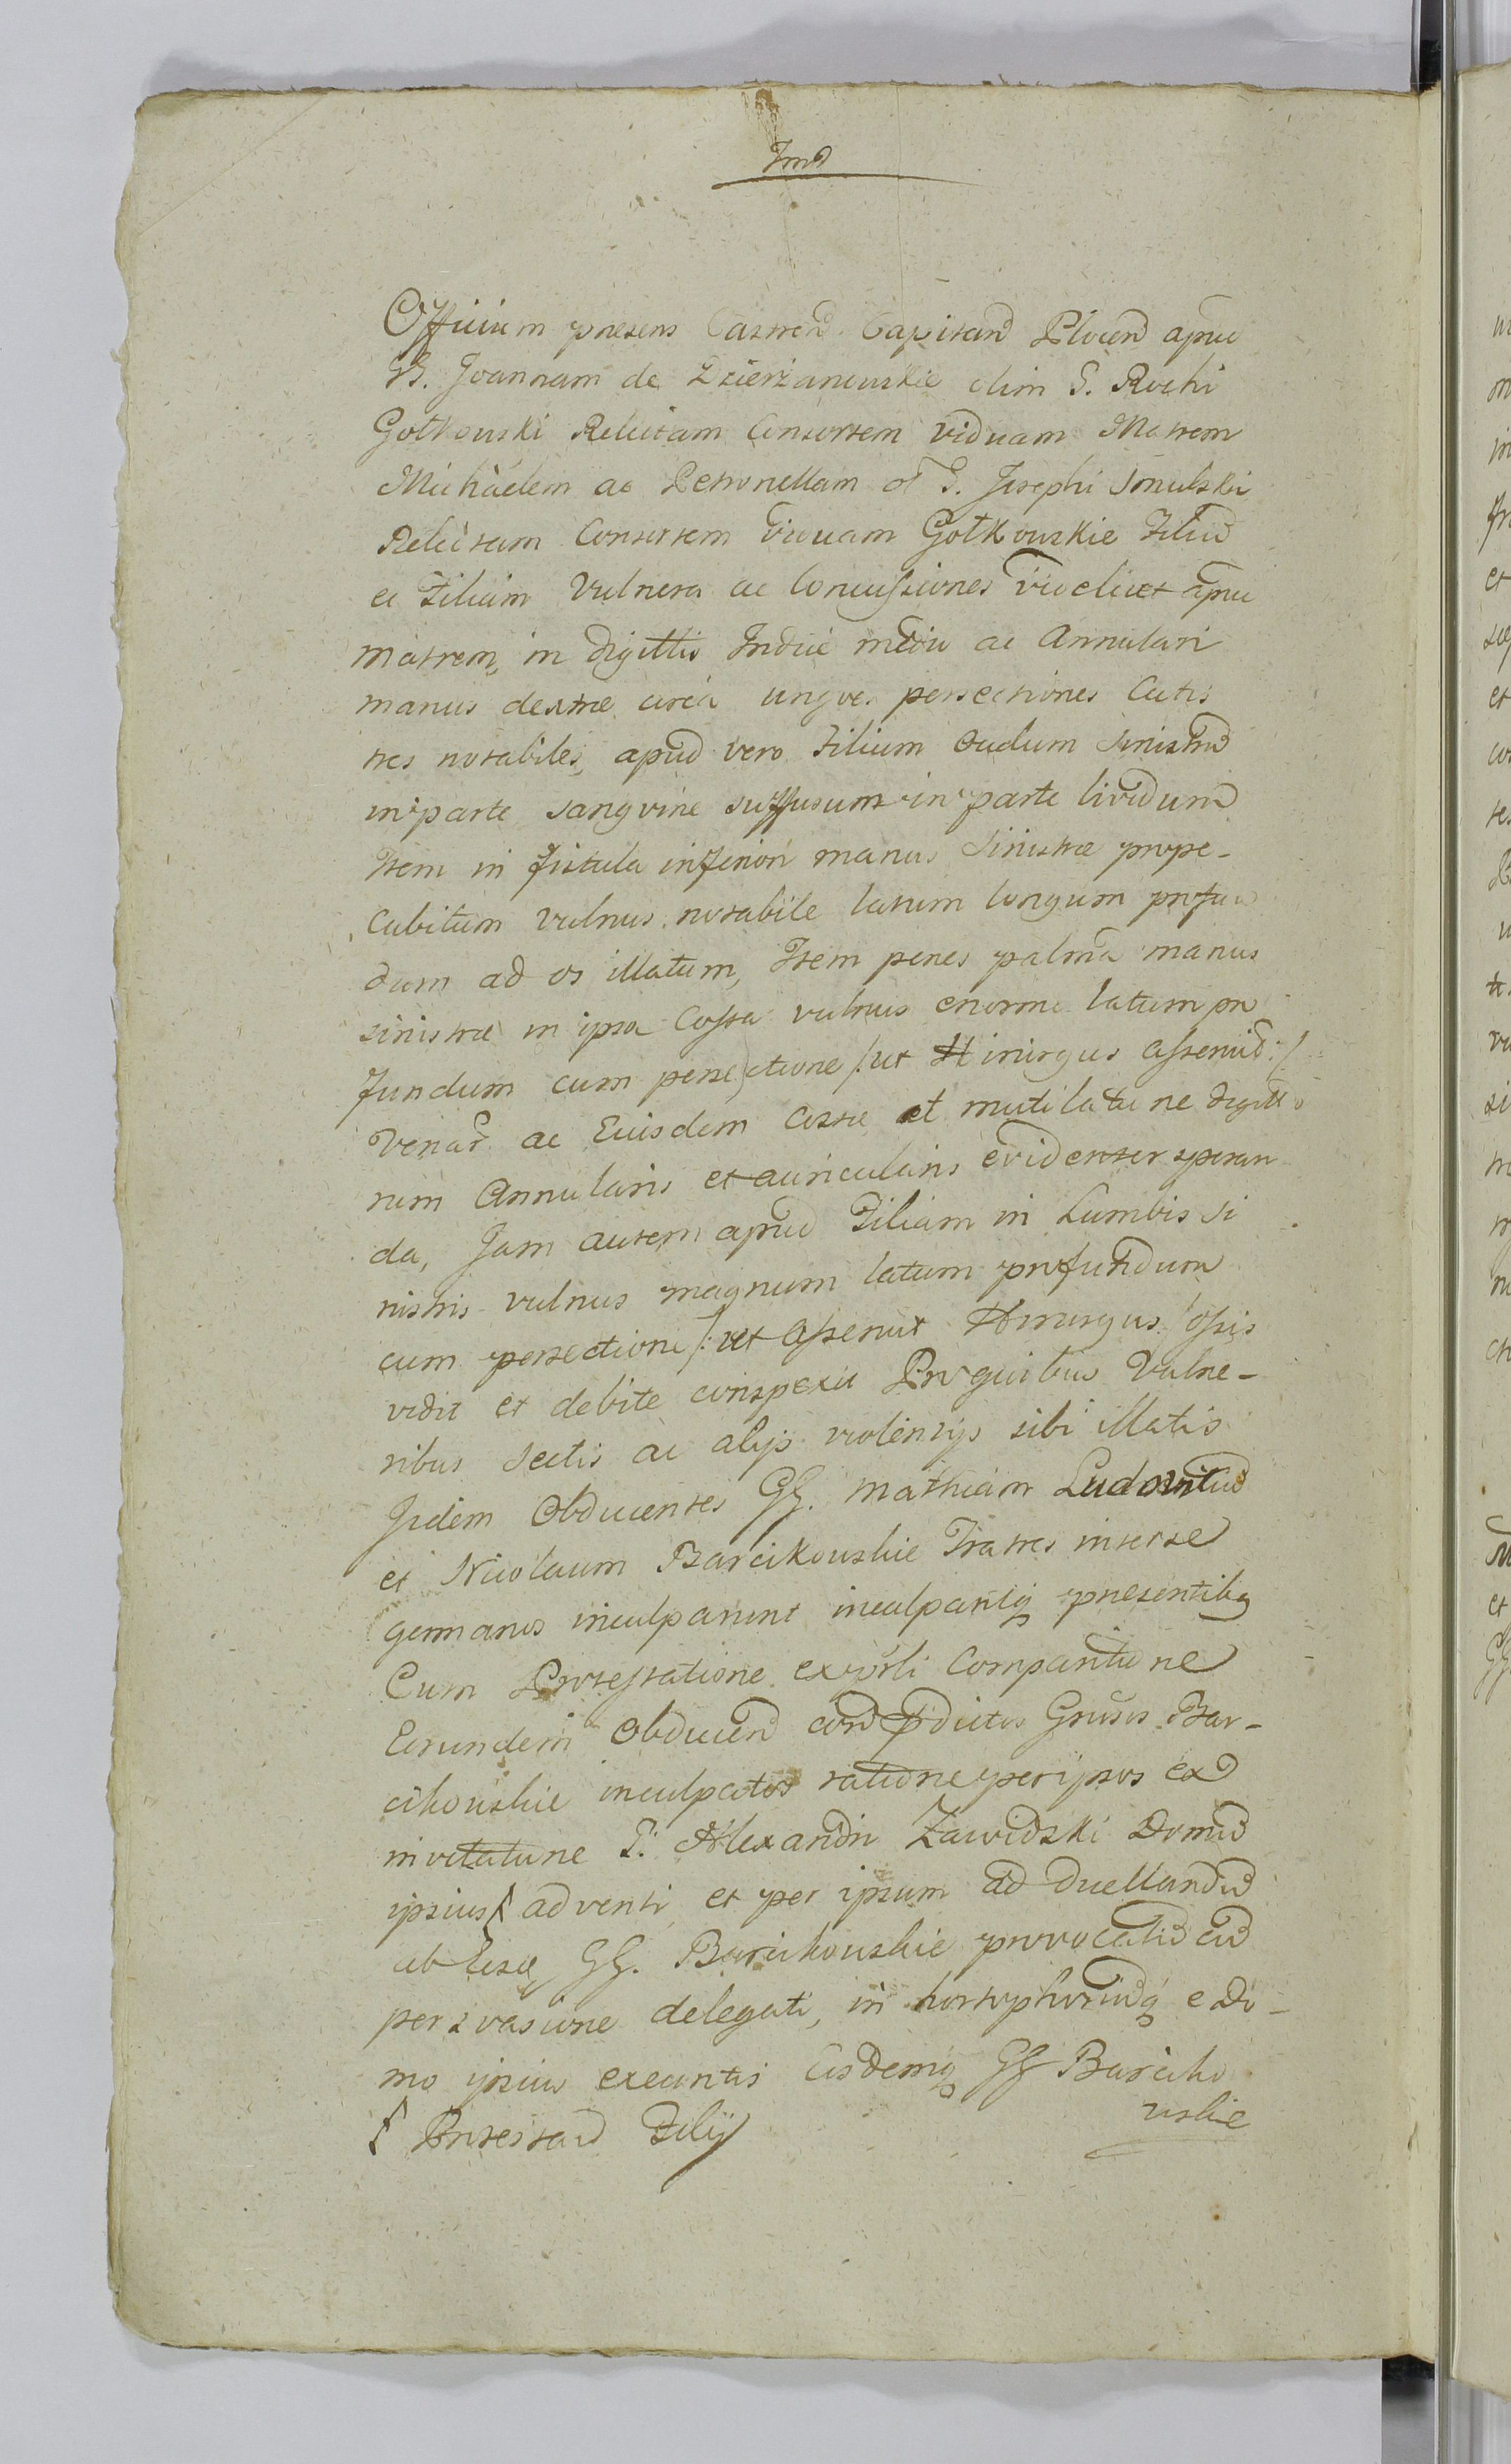 Officium presens Castren Capitan Plocen apud
G. Joannam de Dzierżanowskie olim G. Rochi
Gotkowski Relictam Consortem Viduam Matrem
Michaelem ac Petronellam ol G. Josephi
Relictam Consortem Viduam Gotkowskie Filium
et Filiam Vulnera ac Concussiones videlicet apud
matrem, in digittis Indice medio ac Annulari
manus dextræ circa ungves persectiones Cutis
tres notabiles, apud vero Filium Oculum Sinistrum
in parte sangvine suffusum in parte lividum
Item in fistula inferiori manus Sinistræ prope-
Cubitum Vulnus notabile latum longum profun
dum ad os illatum, Item penes palma manus
sinistræ in ipsa Costa vulnus enorme latum pro
fundum cum persectione /: ut Hirurgus asseruit :/
Venar ac Eiusdem Costæ et mutilatione digitto
rum Annularis et auricularis evidenter speran
da, Jam autem apud Filiam in Lumbis Si
nistris vulnus magnum latum profundum
cum persectione /: ut Asseruit Hirurgus :/ ossis
vidit et debite conspexit Pro quibus Vulne-
ribus Sectis ac alijs violentijs sibi illatis
Iidem Obducentes GG. Mathiam Ludovicum
et Nicolaum Barcikowskie Fratres inter se
germanos inculparunt inculpantq presentibq
Cum Protestatione Comparitione
Eorundem Obducen pdictos Gnosos Bar-
cikowskie inculpatos ratione per ipsos ex
invitatione G. Alexandri Zawidzki Domum
ipsius adventi et per ipsum ad duellandum
ab GG. Barcikowskie provocatio cum
persvasione delegati, in e Do-
mo ipsius exeuntis Eisdemq GG Barciko
wskie
Protestan Filij